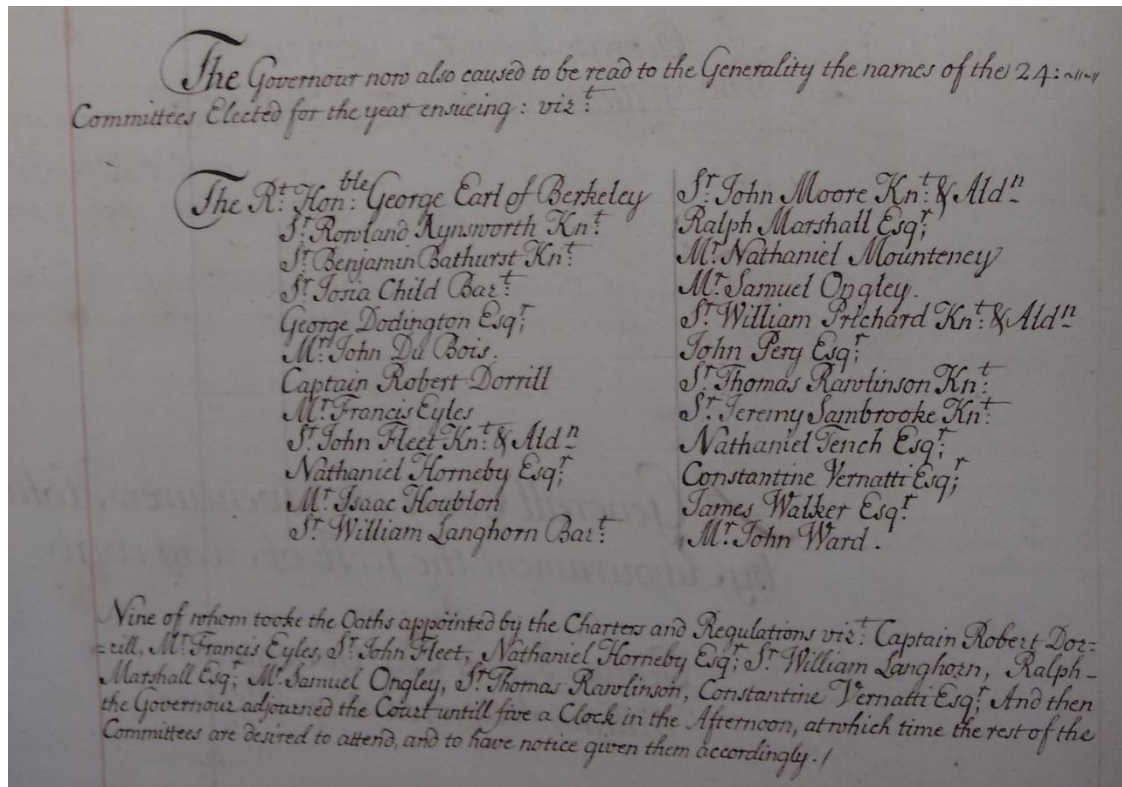 The Governour now also caused to be read to the Generality the names of the 24:
Committees Elected for the year ensueing: vizt.
The Rt. Honble: George Earl of Berkeley
Sr. Rowland Aynsworth Knt.
Sr. Benjamin Bathurst Knt.
Sr. Josia Child Bart.
George Dodington Esqr;
Mr. John Du Bois.
Captain Robert Dorrill
Mr. Francis Eyles
Sr. John Fleet Knt. & Aldn
Nathaniel Horneby Esqr;
Mr. Isaac Houblon
Sr. William Langhorn Bart.
Sr. John Moore Knt. & Aldn
Ralph Marshall Esqr;
Mr. Nathaniel Mounteney
Mr. Samuel Ongley.
Sr. William Prichard Knt. & Aldn
John Pery Esqr;
Sr. Thomas Rawlinson Knt.
Sr. Jeremy Sambrooke Knt.
Nathaniel Tench Esqr;
Constantine Vernatti Esqr;
James Walker Esqr.
Mr. John Ward.
Nine of whom tooke the Oaths appointed by the Charters and Regulations vizt. Captain Robert Dor=
=rill, Mr. Francis Eyles, Sr. John Fleet, Nathaniel Horneby Esqr; Sr. William Langhorn, Ralph-
Marshall Esqr; Mr. Samuel Ongley, Sr. Thomas Rawlinson, Constantine Vernatti Esqr; And then
the Governour adjourned the Court untill five a Clock in the Afternoon, at which time the rest of the
Committees are desired to attend, and to have notice given them accordingly./